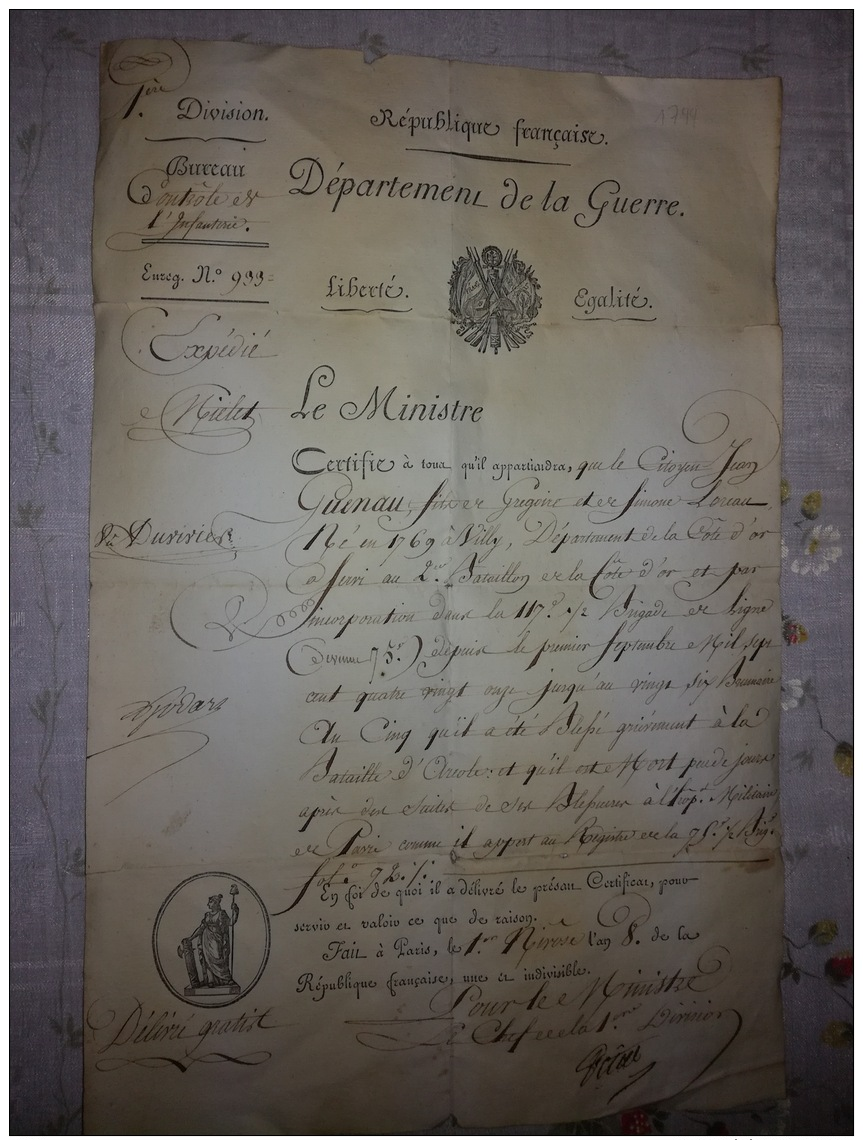 1.ère Division.
Bureau
Contrôle de
l'Infanterie.
Enreg. N.º 933
Expédié
Duvivier
Délivré gratis
1799
République française.
Département de la Guerre.
Liberté. Egalité.
Le Ministre
Certifie à tous qu'il appartiendra, que le Citoyen Jean
Guenau, fils de Gregoire et de Simone Loreau,
Né en 1769 à Villy, Département de la Côte d'or
a Servi au 2.e Bataillon de la Côte d'or et par
incorporation dans la 117.e 1/2 Brigade de ligne
(devenue 75.e) depuis le premier Septembre Mil sept
cent quatre vingt onze jusqu'au vingt six Brumaire
An Cinq qu'il a été Blessé griévement à la
Bataille d'Arcole; et qu'il est Mort peu de jours
après des Suites de ses Blessures à l'hop.l Militaire
de Pavie comme il appert au Registre de la 75.e 1/2 Brig.e
fol.o 92.
En foi de quoi il a délivré le présent Certificat, pour
servir et valoir ce que de raison.
Fait à Paris, le 1.er Nivôse l'an 8. de la
République française, une et indivisible.
Pour le Ministre
Le Chef de la 1.ere Division